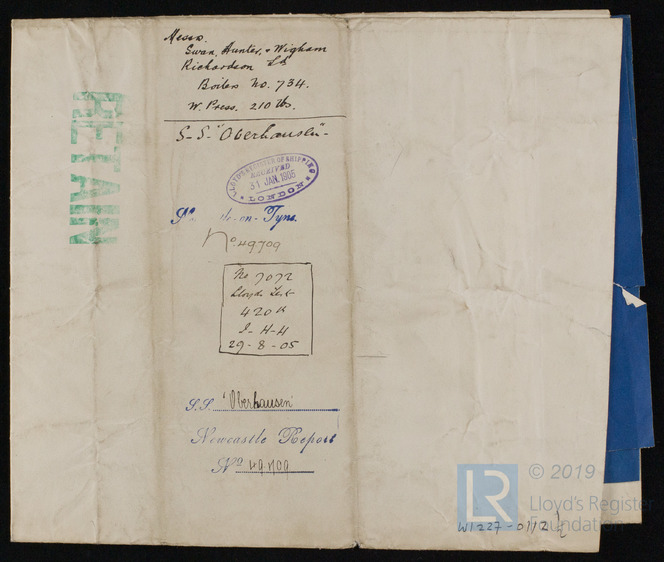 RETAIN
Messrs.
Swan, Hunter, & Wigham
Richardson Ld
Boiler No. 734.
W. Press. 210 lbs.
S-S- "Oberhausen"-
LLOYD'S REGISTER OF SHIPPING
RECEIVED
31 JAN. 1905
LONDON
-on-Tyne.
No. 49709
No 7072
Lloyds Test
420 lb
J-H-H
29-8-05
S.S. 'Oberhausen'
Newcastle Report
No 49709
LR © 2019
Lloyd's Register
Foundation
W1227-0112